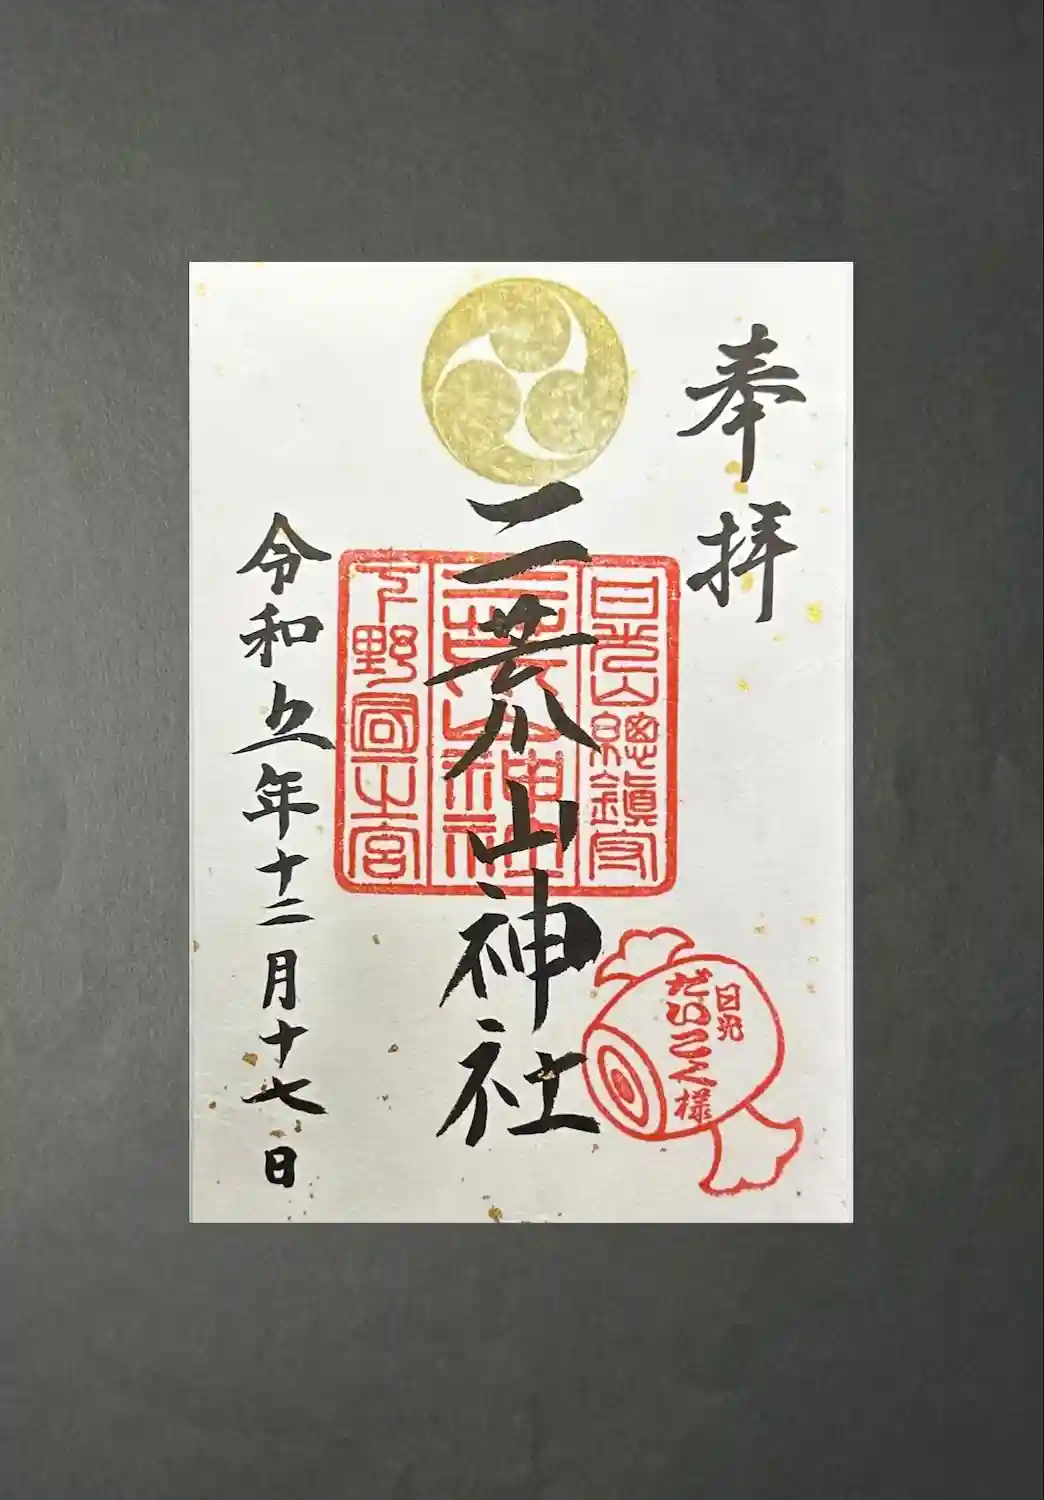 奉拝
日光山總鎮守
二荒山神社
下野國一之宮
二荒山神社
日光
だいこく様
令和五年十二月十七日